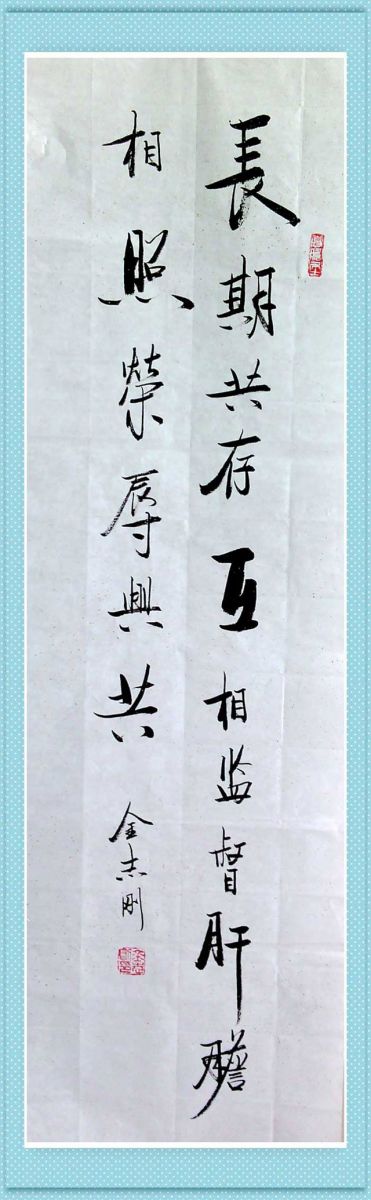 長期共存互相监督肝膽
相照榮辱與共
金志刚